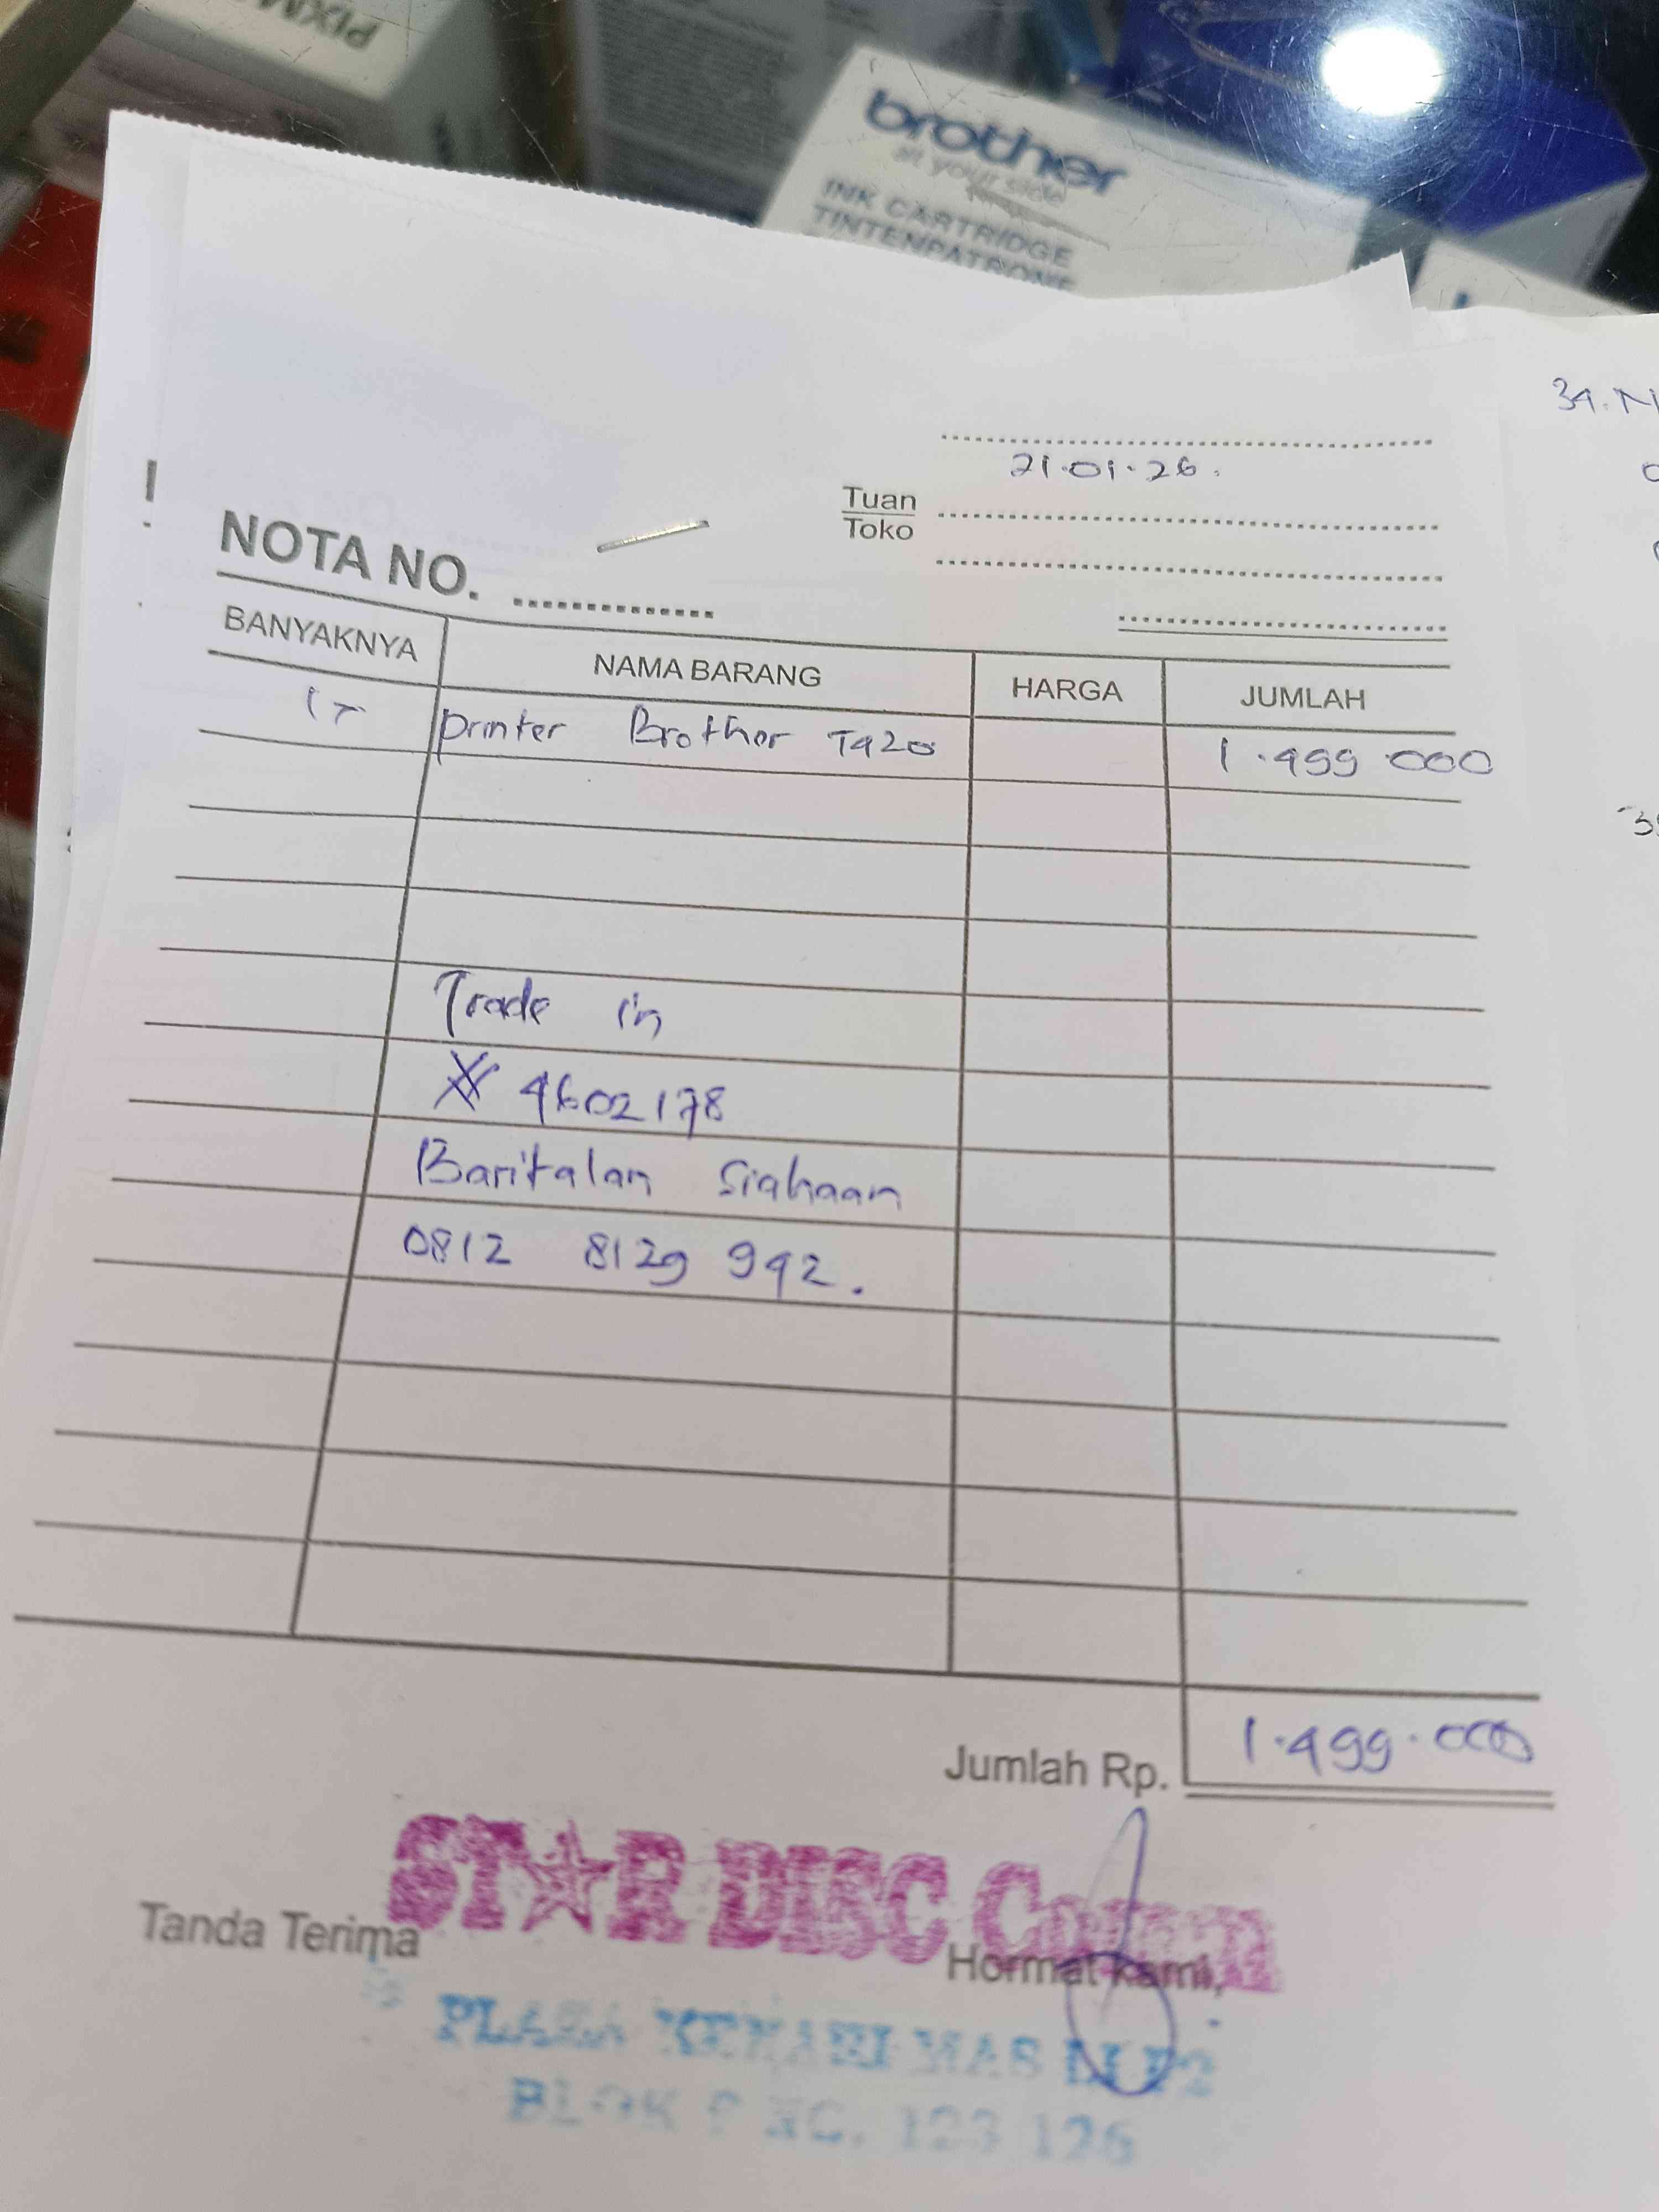 PIXM
brother
at your side
INK CARTRIDGE
TINTENPATRONE
34. N
21.01.26.
Tuan
Toko
NOTA NO.
BANYAKNYA NAMA BARANG HARGA JUMLAH
1 printer Brother T420 1.499.000
Trade in
4602178
Baritalan Siahaan
0812 8129 942.
Jumlah Rp. 1.499.000
ST★R DISC Comm
Tanda Terima
Hormat kami,
PLAZA KENARI MAS
BLOK NO. 123 126